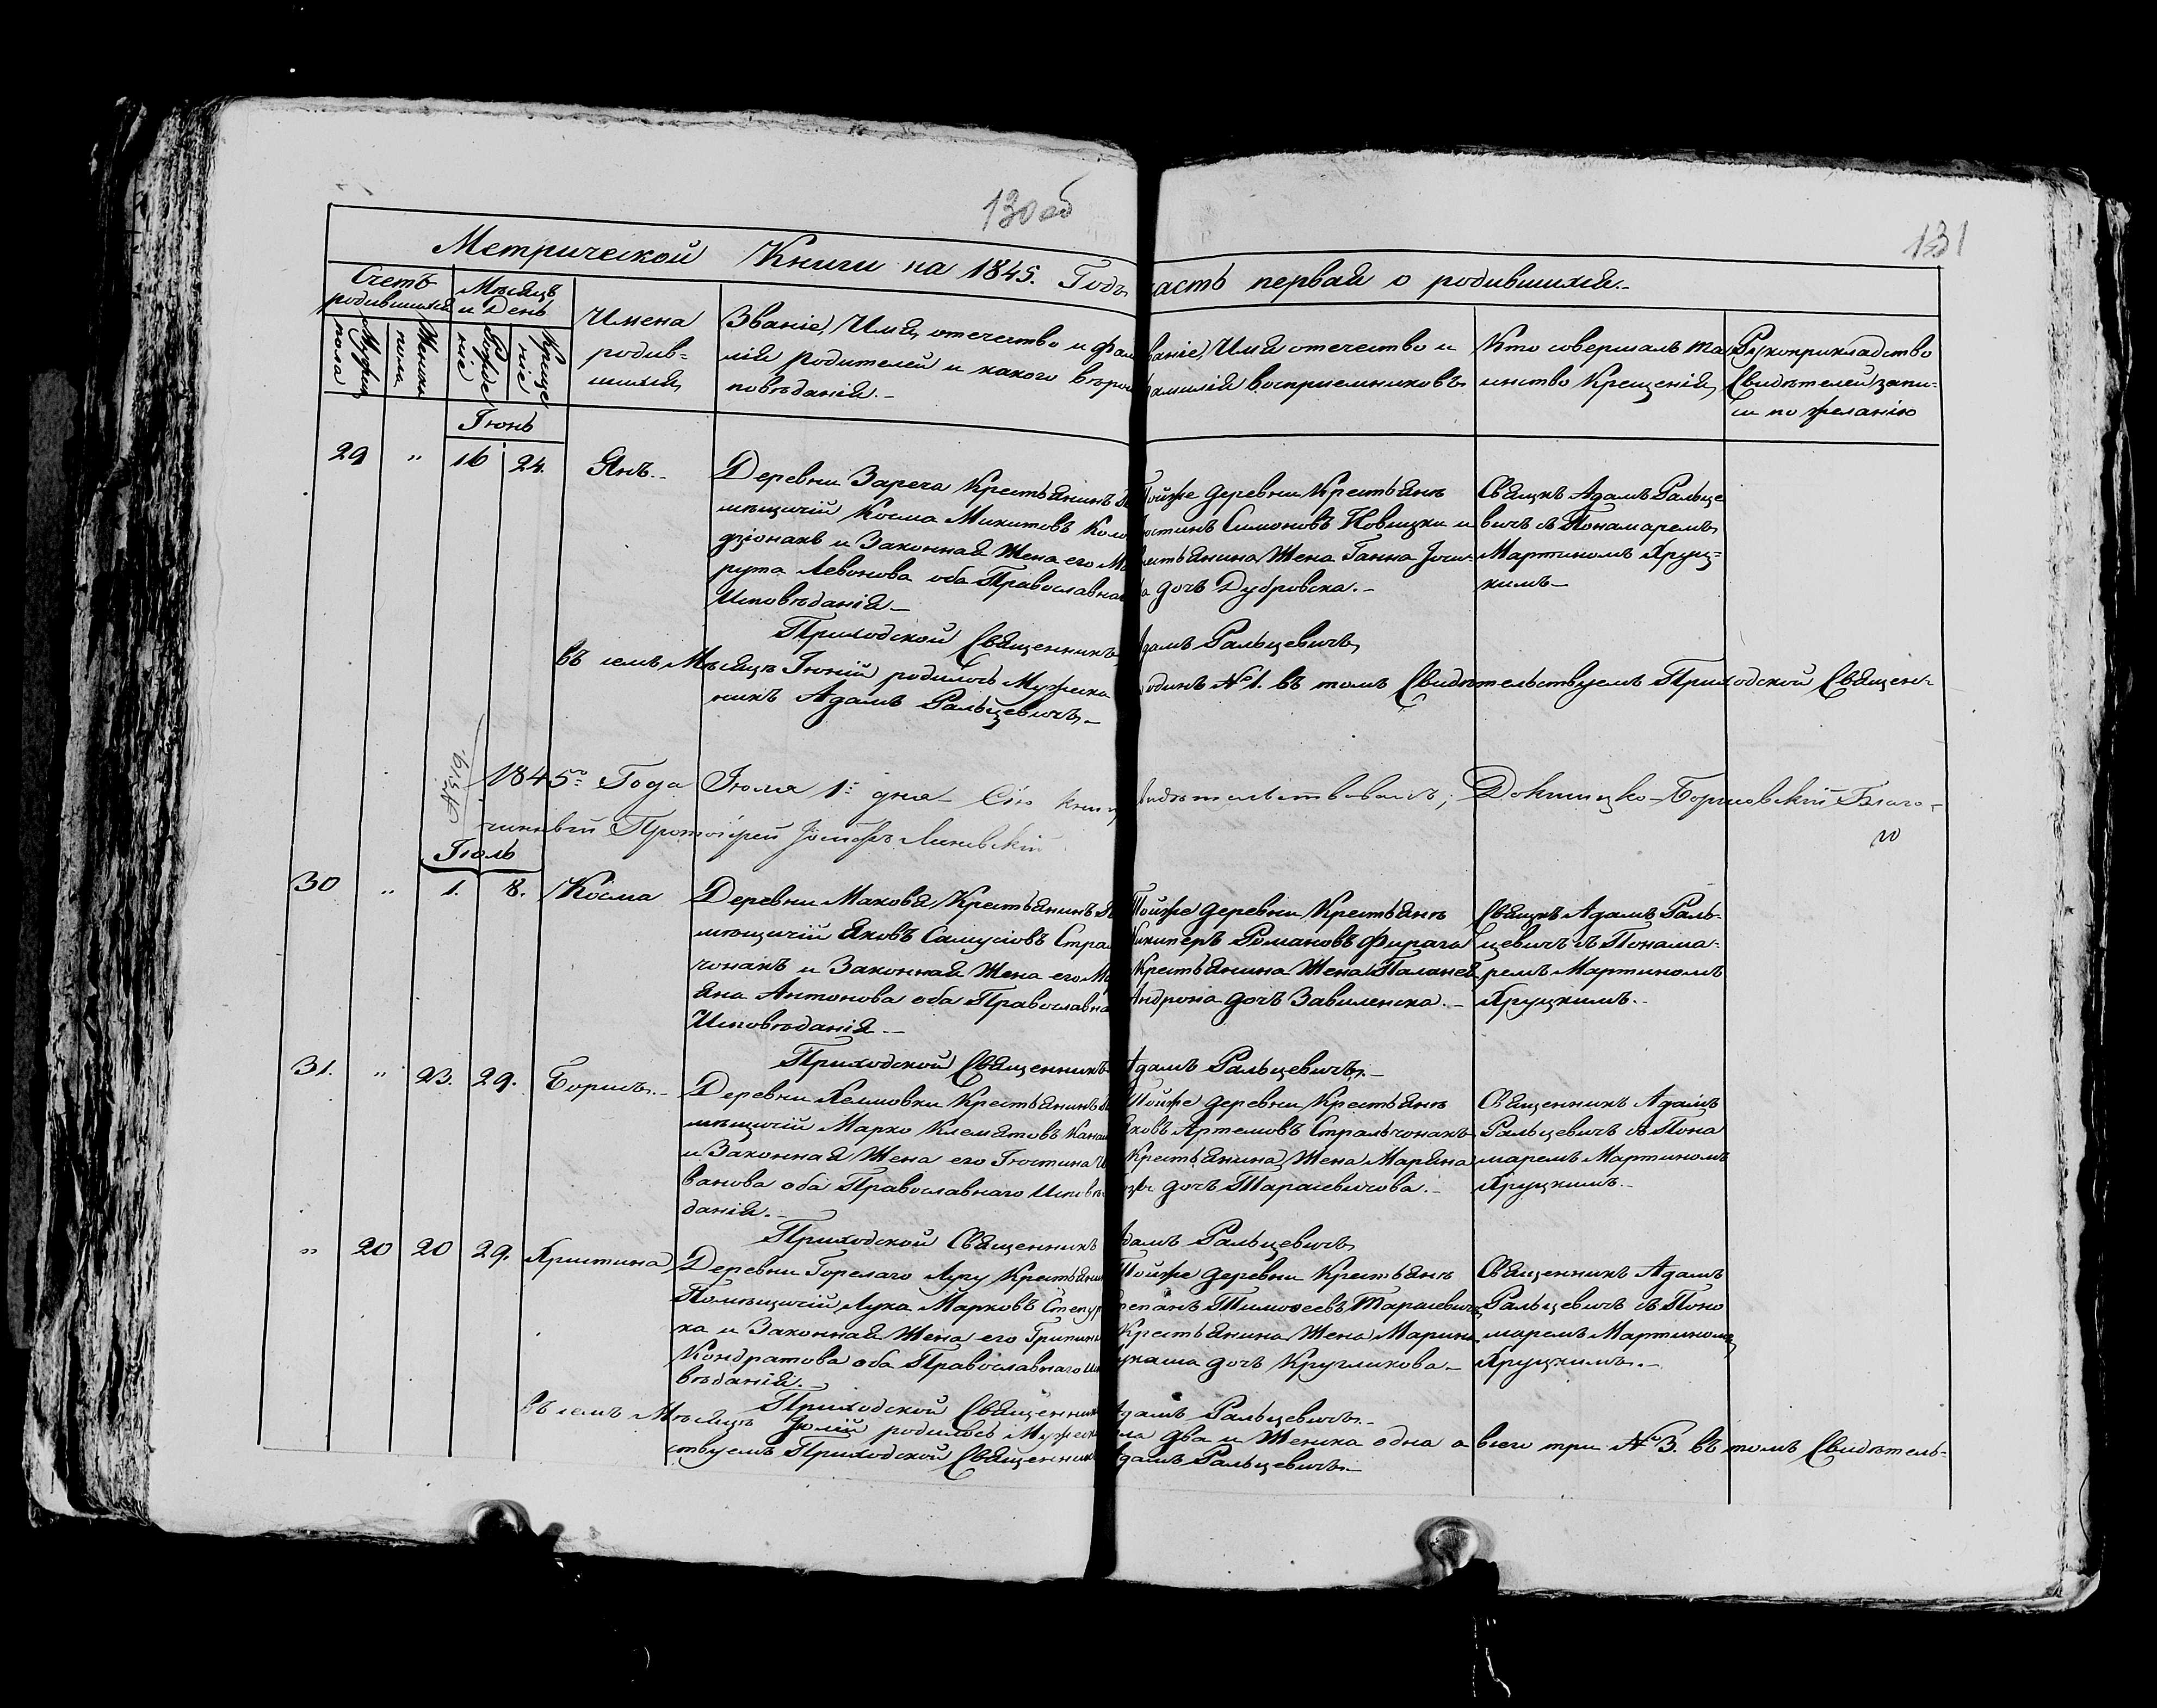 130 об
131
Метрической Книги на 1845. Годъ
асть первая о родившихся.-
Счетъ родившихся
Мужеска пола
Женска пола
Мѣсяцъ и День
Рожденіе
Крещеніе
Имена
родив=
шихся
Званіе, Имя, отечество и фам
лія родителей и какого вѣрои
повѣданія.-
ваніе, Имя отечество и
амилія воспріемниковъ
Кто совершалъ та
инство Крещенія
Рукоприкладство
Свидѣтелей запи-
си по желанію
Іюнь
29 " 16 24. Янъ.-
Деревни Зареча Крестьянинъ По
мѣщичій Косма Микитовъ Коло
дзіонакъ и Законная Жена его Ма
рута Левонова оба Православна
Исповѣданія.-
Тойже деревни Крестьянъ
Симоновъ Новицки и
рестьянина Жена Ганна
а дочь Дубровска.-
Свящнъ АдамъРальце
вичъ съ Понамаремъ
Мартиномъ Хруц=
кимъ-
Приходской Священникъ
Адамъ Ральцевичъ
Въ семъ Мѣсяцѣ Іюній родилось Мужеска
одинъ №1. въ томъ Свидѣтельствуемъ Приходской Священ-
никъ Адамъ Ральцевичъ.-
1845го Года Іюля 1го дня Сію книгу
видѣтельствовалъ, Докшицко-Борисовскій Благо-
чинный Протоіерей
Іюль
30 " 1. 8. Косма
Деревни Махова Крестьянинъ По
мѣщичій Яковъ Самусіовъ Стра
чонакъ и Законная Жена его Ма
яна Антонова оба Православна
Исповѣданія.-
Тойже деревни Крестьянъ
Никиперъ Романовъ Фирага
Крестьянина Жена Паланея
Андрона дочъ Завиленска.-
Свящнъ Адамъ Раль-
цевичъ съ Понама-
ремъ Мартиномъ
Хруцкимъ.-
Приходской Священникъ
Адамъ Ральцевичъ.-
31. " 23. 29. Борисъ.-
Деревни Крестьянинъ По
мѣщичій Марко Клемятовъ
и Законная Жена его Іюстина И
ванова оба Православнаго Исповѣ
данія.-
Тойже деревни Крестьянъ
Яковъ Артемовъ Стральчонакъ
Крестьянина Жена Маряна
дочъ Тарасевичова.-
Священникъ Адамъ
Ральцевичъ съ Пона
маремъ Мартиномъ
Хруцкимъ.-
Приходской Священникъ
Адамъ Ральцевичъ
" 20 20 29. Христина
Деревни Горелаго Лугу Крестьянин
Помѣщичій Лука Марковъ Степур
ка и Законная Жена его Грипина
Кондратова оба Православнаго Ис
вѣданія.-
Тойже деревни Крестьянъ
тепанъ Тимофеевъ Тарасевичъ
Крестьянина Жена Марина
укаша дочъ Кругликова.-
Священникъ Адамъ
Ральцевичъ съ Поно
маремъ Мартиномъ
Хруцкимъ.-
Приходской Священник
Адамъ Ральцевичъ.-
Въ семъ Мѣсяцѣ Іюлій родилось Мужеск
ла два и Женска одна а всего три №3. въ томъ Свидѣтель-
ствуемъ Приходской Священник
Адамъ Ральцевичъ.-